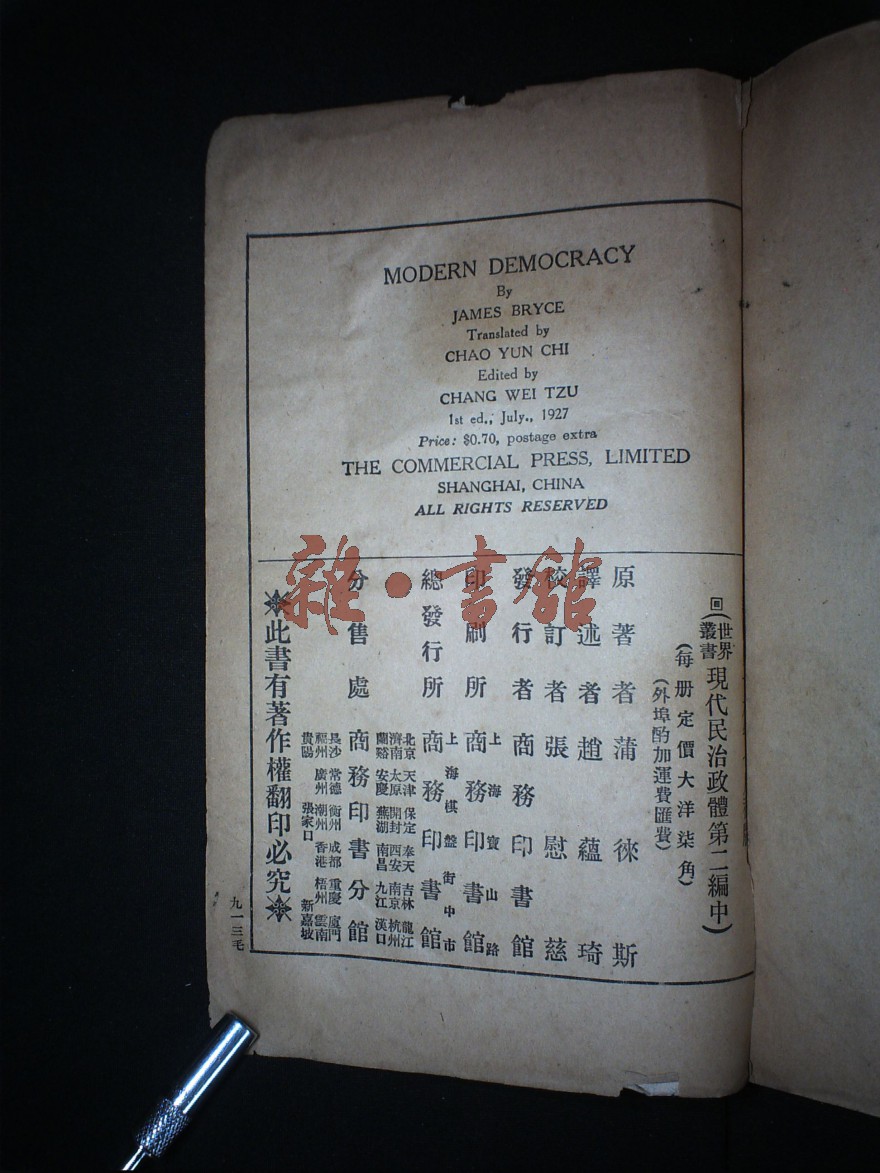 MODERN DEMOCRACY
By
JAMES BRYCE
Translated by
CHAO YUN CHI
Edited by
CHANG WEI TZU
1st ed., July., 1927
Price: $0.70, postage extra
THE COMMERCIAL PRESS, LIMITED
SHANGHAI, CHINA
ALL RIGHTS RESERVED
回(世界叢書現代民治政體第二編中)
(每册定價大洋柒角)
(外埠酌加運費匯費)
原著者 蒲徠斯
譯述者 趙蘊琦
校訂者 張慰慈
發行者 商務印書館
印刷所 上海寶山路 商務印書館
總發行所 上海棋盤街中市 商務印書館
分售處 商務印書分館
北京 天津 保定 奉天 吉林 龍江
濟南 太原 開封 西安 南京 杭州
蘭谿 安慶 蕪湖 南昌 九江 漢口
長沙 常德 衡州 成都 重慶 廈門
福州 廣州 潮州 香港 梧州 雲南
貴陽 張家口 新嘉坡
※此書有著作權翻印必究※
九一三毛
雜·書館